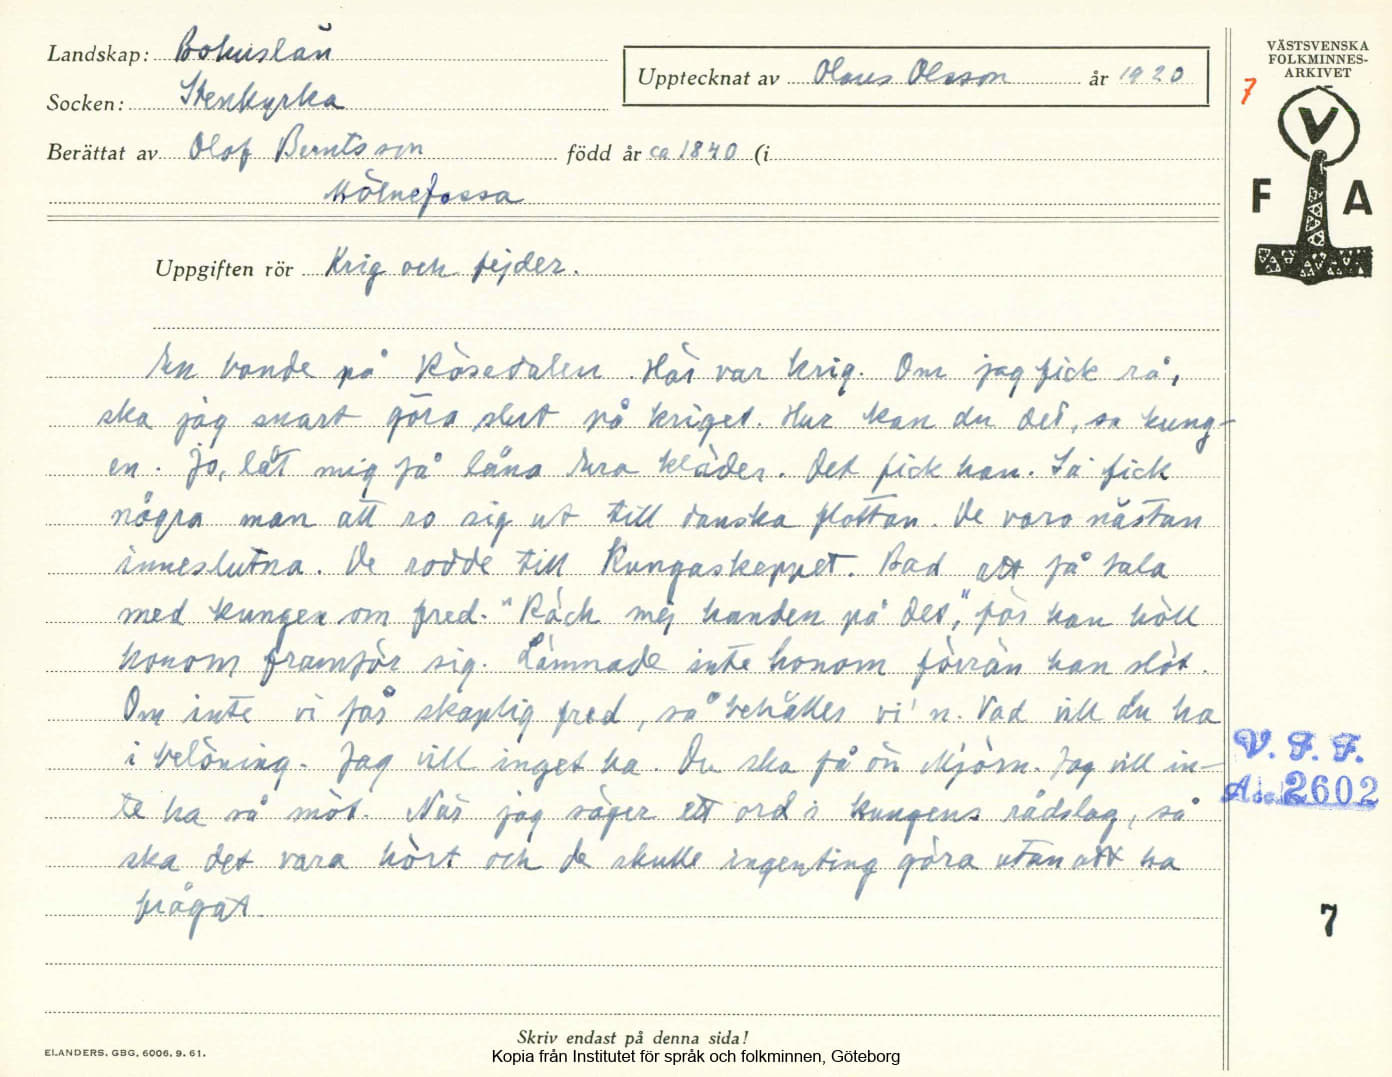 Landskap: Bohuslän
Socken: Stenkyrka
Upptecknat av Olaus Olsson år 1920
Berättat av Olof Berntsson född år ca 1840 (i
Mölnefossa
Uppgiften rör Krig och fejder.
En bonde på Röseдalen. Här var krig. Om jag fick rå,
ska jag snart göra slut på kriget. Hur kan du det, sa kung-
en. Jo, låt mig få låna Era kläder. Det fick han. Så fick
några man att ro sig ut till danska flottan. De voro nästan
inneslutna. De rodde till Kungaskeppet. Bad att få tala
med kungen om fred. "Räck mej handen på det," för han höll
honom framför sig. Lämnade inte honom förrän han slöt.
Om inte vi får skaplig fred, så behålles vi'n. Vad vill du ha
i belöning. Jag vill inget ha. Du ska få ön Mjörn. Jag vill in-
te ha så möt. När jag säger ett ord i kungens rådslag, så
ska det vara hört och de skulle ingenting göra utan att ha
frågat.
VÄSTSVENSKA
FOLKMINNES-
ARKIVET
7
V
F A
V. F. F.
2602
7
Skriv endast på denna sida!
ELANDERS, GBG, 6006. 9. 61.
Kopia från Institutet för språk och folkminnen, Göteborg